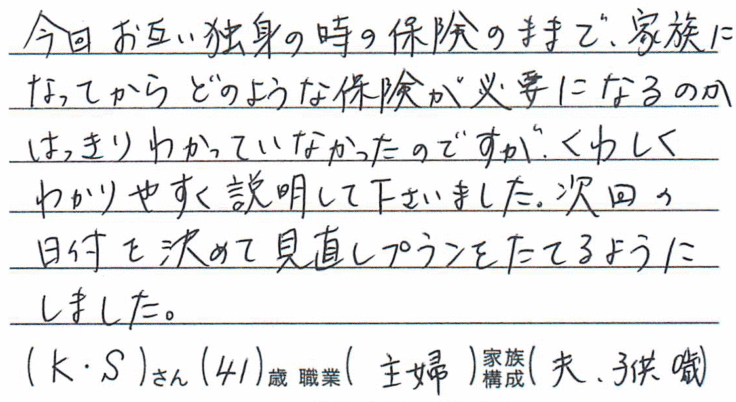 今回 お互い独身の時の保険のままで、家族に
なってから どのような保険が必要になるのか
はっきりわかっていなかったのですが、くわしく
わかりやすく説明して下さいました。次回の
日付を決めて見直しプランをたてるように
しました。
(K・S)さん(41)歳 職業(主婦)家族構成(夫、子供 歳)